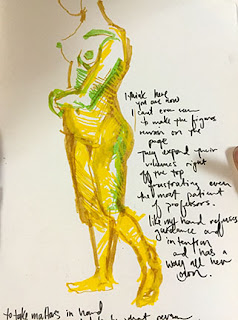 I think here
you see how
I can't even
to make the figures
remain on the
page
They expand their
volumes right
off the top
frustrating even
the most patient
of professors.
like my hand refuses
guidance and
intention
and has a
way all her
own.
to take matters in hand
what